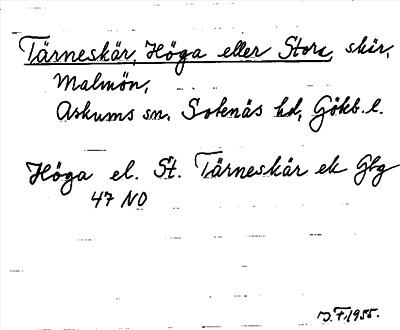 Tärneskär, Höga eller Stora, skär,
Malmön,
Askums sn, Sotenäs hd, Götеb. l.
Höga el. St. Tärneskär ek Gbg
47 NO
J.F. 1955.